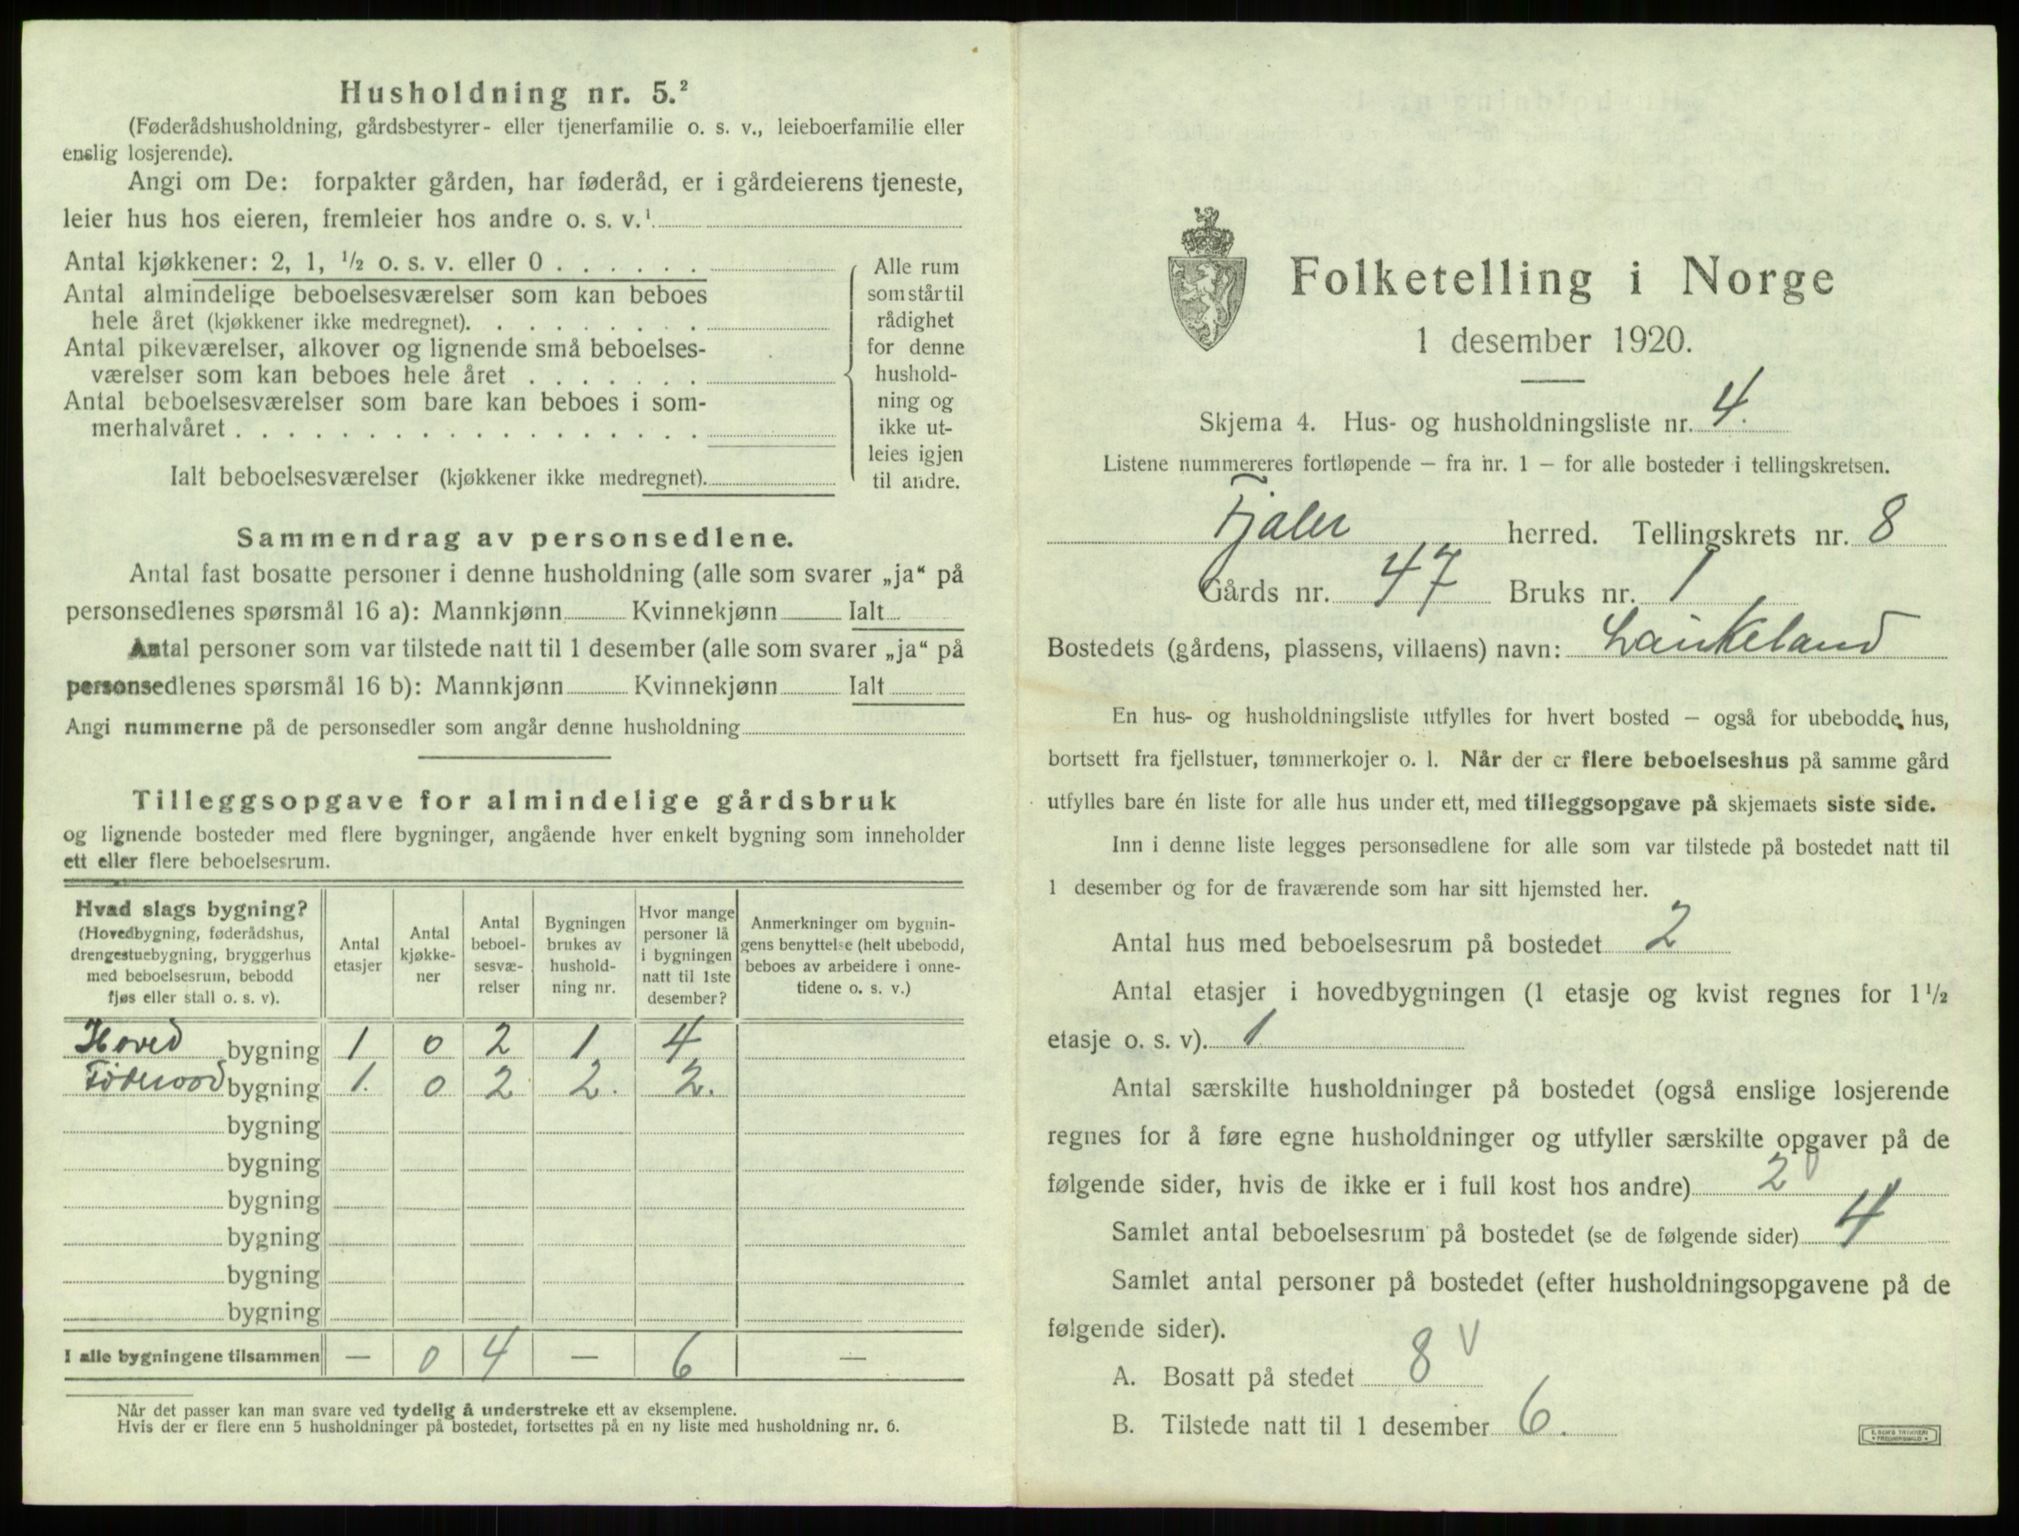 Husholdning nr. 5.²
(Føderådshusholdning, gårdsbestyrer- eller tjenerfamilie o. s. v., leieboerfamilie eller
enslig losjerende).
Angi om De: forpakter gården, har føderåd, er i gårdeierens tjeneste,
leier hus hos eieren, fremleier hos andre o. s. v.¹
Antal kjøkkener: 2, 1, ½ o. s. v. eller 0 . . . . . .
Antal almindelige beboelsesværelser som kan beboes
hele året (kjøkkener ikke medregnet). . . . . . . . .
Antal pikeværelser, alkover og lignende små beboelses-
værelser som kan beboes hele året . . . . . . .
Antal beboelsesværelser som bare kan beboes i som-
merhalvåret . . . . . . . . . . . . . . . . . .
Ialt beboelsesværelser (kjøkkener ikke medregnet).
Alle rum
som står til
rådighet
for denne
hushold-
ning og
ikke ut-
leies igjen
til andre.
Sammendrag av personsedlene.
Antal fast bosatte personer i denne husholdning (alle som svarer „ja“ på
personsedlenes spørsmål 16 a): Mannkjønn Kvinnekjønn Ialt
Antal personer som var tilstede natt til 1 desember (alle som svarer „ja“ på
personsedlenes spørsmål 16 b): Mannkjønn Kvinnekjønn Ialt
Angi nummerne på de personsedler som angår denne husholdning
Tilleggsopgave for almindelige gårdsbruk
og lignende bosteder med flere bygninger, angående hver enkelt bygning som inneholder
ett eller flere beboelsesrum.
Hvad slags bygning?
(Hovedbygning, føderådshus,
drengestuebygning, bryggerhus
med beboelsesrum, bebodd
fjøs eller stall o. s. v).
Antal
etasjer
Antal
kjøkke-
ner
Antal
beboel-
sesvæ-
relser
Bygningen
brukes av
hushold-
ning nr.
Hvor mange
personer lå
i bygningen
natt til 1ste
desember?
Anmerkninger om bygnin-
gens benyttelse (helt ubebodd,
beboes av arbeidere i onne-
tidene o. s. v.)
Hoved bygning 1 0 2 1 4
bygning 1. 0 2 2. 2.
bygning
bygning
bygning
bygning
bygning
bygning
I alle bygningene tilsammen — 0 4 — 6 —
Når det passer kan man svare ved tydelig å understreke ett av eksemplene.
Hvis der er flere enn 5 husholdninger på bostedet, fortsettes på en ny liste med husholdning nr. 6.
Folketelling i Norge
1 desember 1920.
Skjema 4. Hus- og husholdningsliste nr. 4.
Listene nummereres fortløpende — fra nr. 1 — for alle bosteder i tellingskretsen.
Fjaler herred. Tellingskrets nr. 8
Gårds nr. 47 Bruks nr. 1
Bostedets (gårdens, plassens, villaens) navn: Laukeland
En hus- og husholdningsliste utfylles for hvert bosted — også for ubebodde hus,
bortsett fra fjellstuer, tømmerkojer o. l. Når der er flere beboelseshus på samme gård
utfylles bare én liste for alle hus under ett, med tilleggsopgave på skjemaets siste side.
Inn i denne liste legges personsedlene for alle som var tilstede på bostedet natt til
1 desember og for de fraværende som har sitt hjemsted her.
Antal hus med beboelsesrum på bostedet 2
Antal etasjer i hovedbygningen (1 etasje og kvist regnes for 1½
etasje o. s. v). 1
Antal særskilte husholdninger på bostedet (også enslige losjerende
regnes for å føre egne husholdninger og utfyller særskilte opgaver på de
følgende sider, hvis de ikke er i full kost hos andre) 2
Samlet antal beboelsesrum på bostedet (se de følgende sider) 4
Samlet antal personer på bostedet (efter husholdningsopgavene på de
følgende sider).
A. Bosatt på stedet 8
B. Tilstede natt til 1 desember 6.